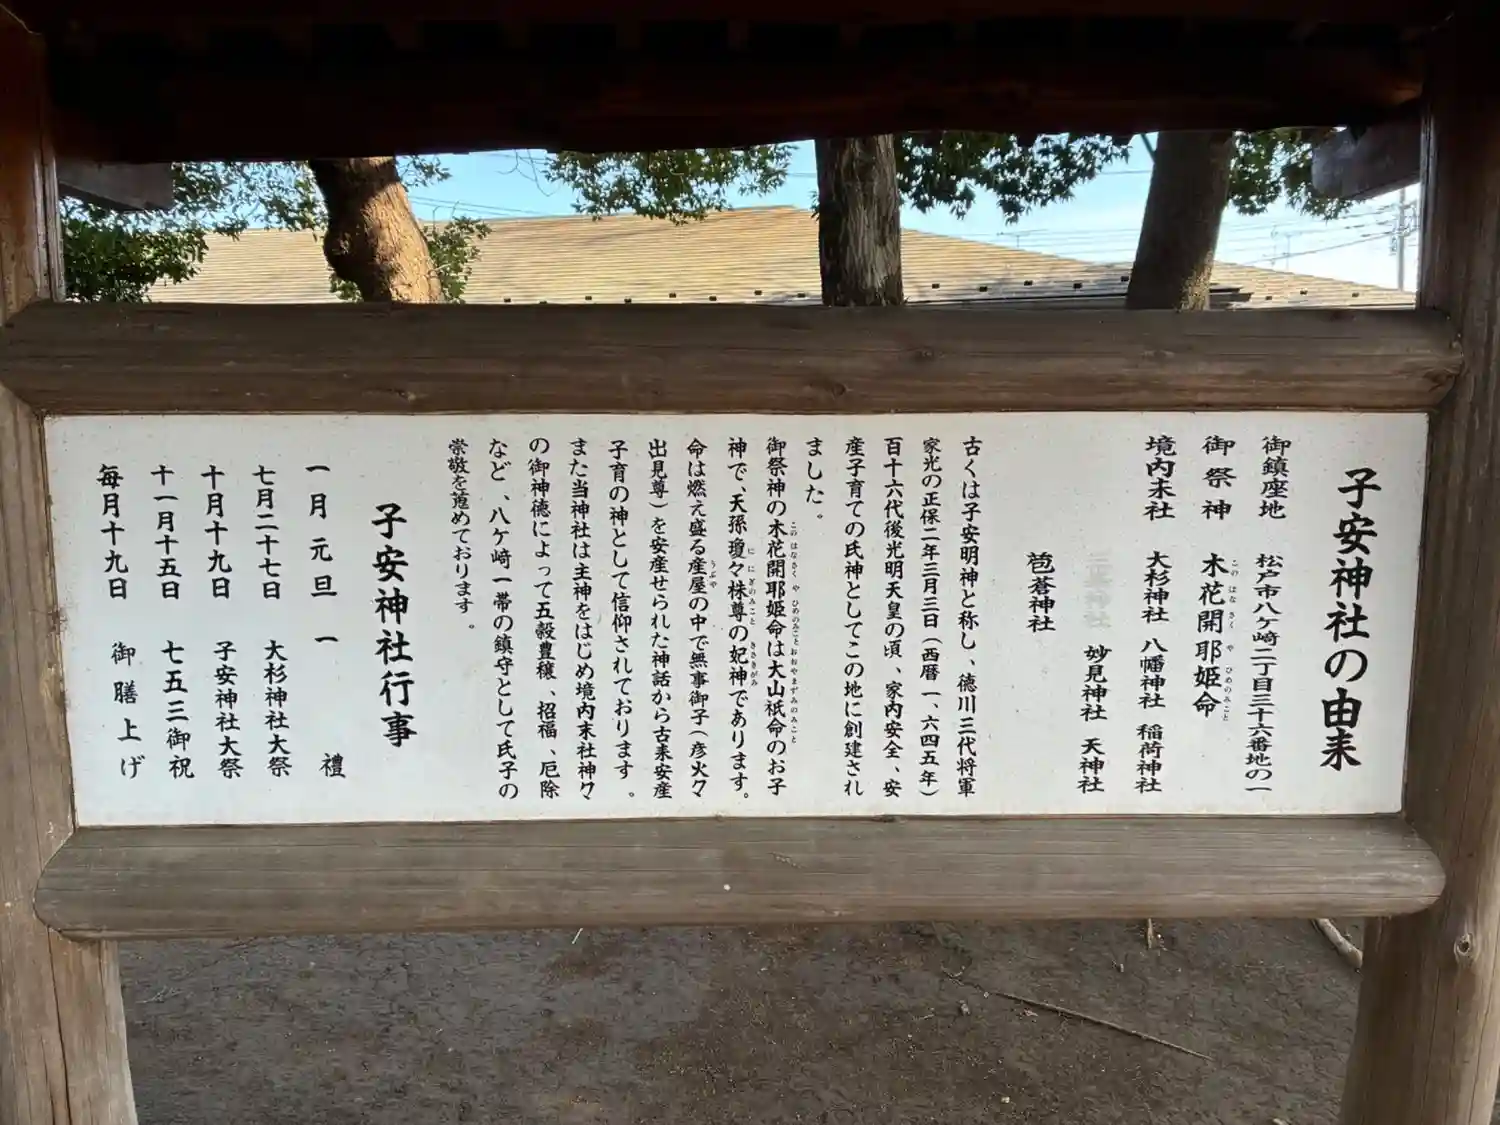 子安神社の由来
御鎮座地 松戸市八ケ崎二丁目三十六番地の一
御祭神 木花開耶姫命
このはなさくやひめのみこと
境内末社 大杉神社 八幡神社 稲荷神社
三峯神社 妙見神社 天神社
芭蒼神社
古くは子安明神と称し、徳川三代将軍
家光の正保二年三月三日(西暦一、六四五年)
百十六代後光明天皇の頃、家内安全、安
産子育ての氏神としてこの地に創建され
ました。
御祭神の木花開耶姫命は大山祇命のお子
このはなさくやひめのみこと おおやまずみのみこと
神で、天孫瓊々杵尊の妃神であります。
ににぎのみこと きさきがみ
命は燃え盛る産屋の中で無事御子(彦火々
うぶや
出見尊)を安産せられた神話から古来安産
子育の神として信仰されております。
また当神社は主神をはじめ境内末社神々
の御神徳によって五穀豊穣、招福、厄除
など、八ケ崎一帯の鎮守として氏子の
崇敬を蒐めております。
子安神社行事
一月元旦 一禮
七月二十七日 大杉神社大祭
十月十九日 子安神社大祭
十一月十五日 七五三御祝
毎月十九日 御膳上げ